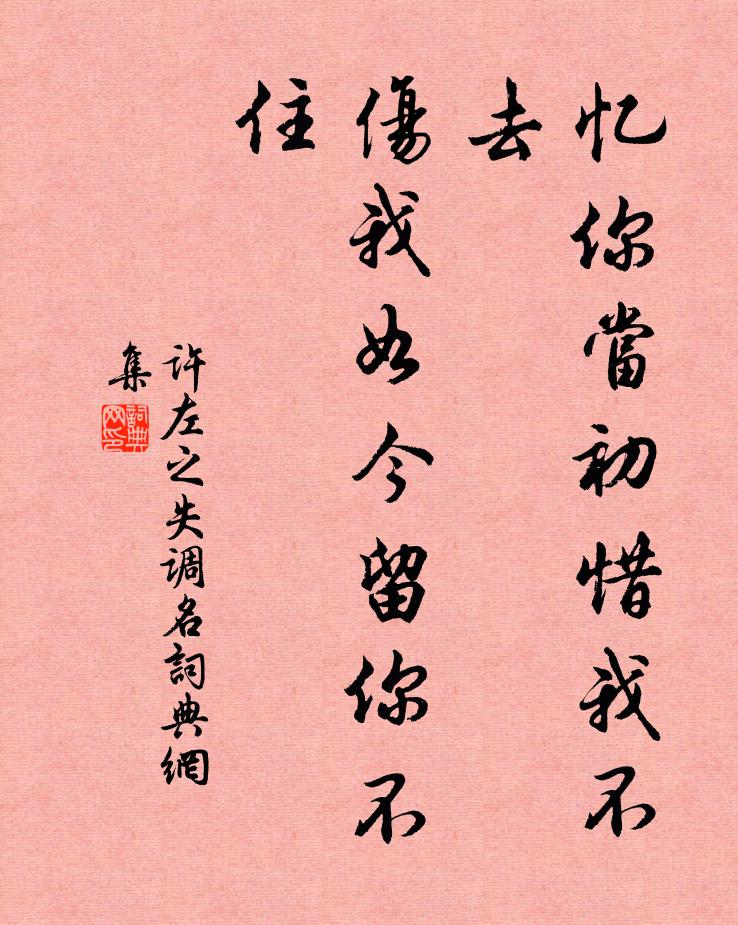 忆你當初惜我不
去
傷我如今留你不
住
许左之失调名詞典網
集
詞典
网印